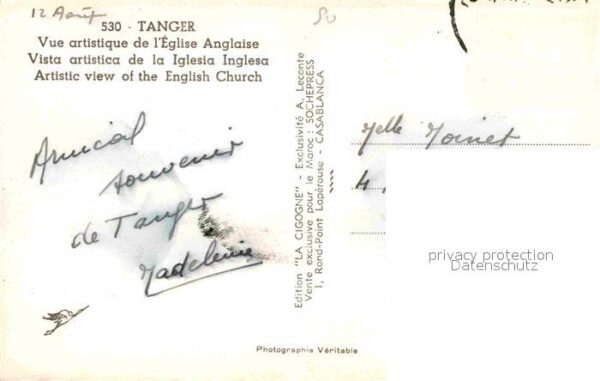 12 Août
50
530 - TANGER
Vue artistique de l'Église Anglaise
Vista artistica de la Iglesia Inglesa
Artistic view of the English Church
Amical
souvenir
de Tanger
Madeleine
Edition "LA CIGOGNE" - Exclusivité A. Leconte
Vente exclusive pour le Maroc : SOCHEPRESS
1, Rond-Point Lapérouse - CASABLANCA
Melle
4,
privacy protection
Datenschutz
Photographie Véritable